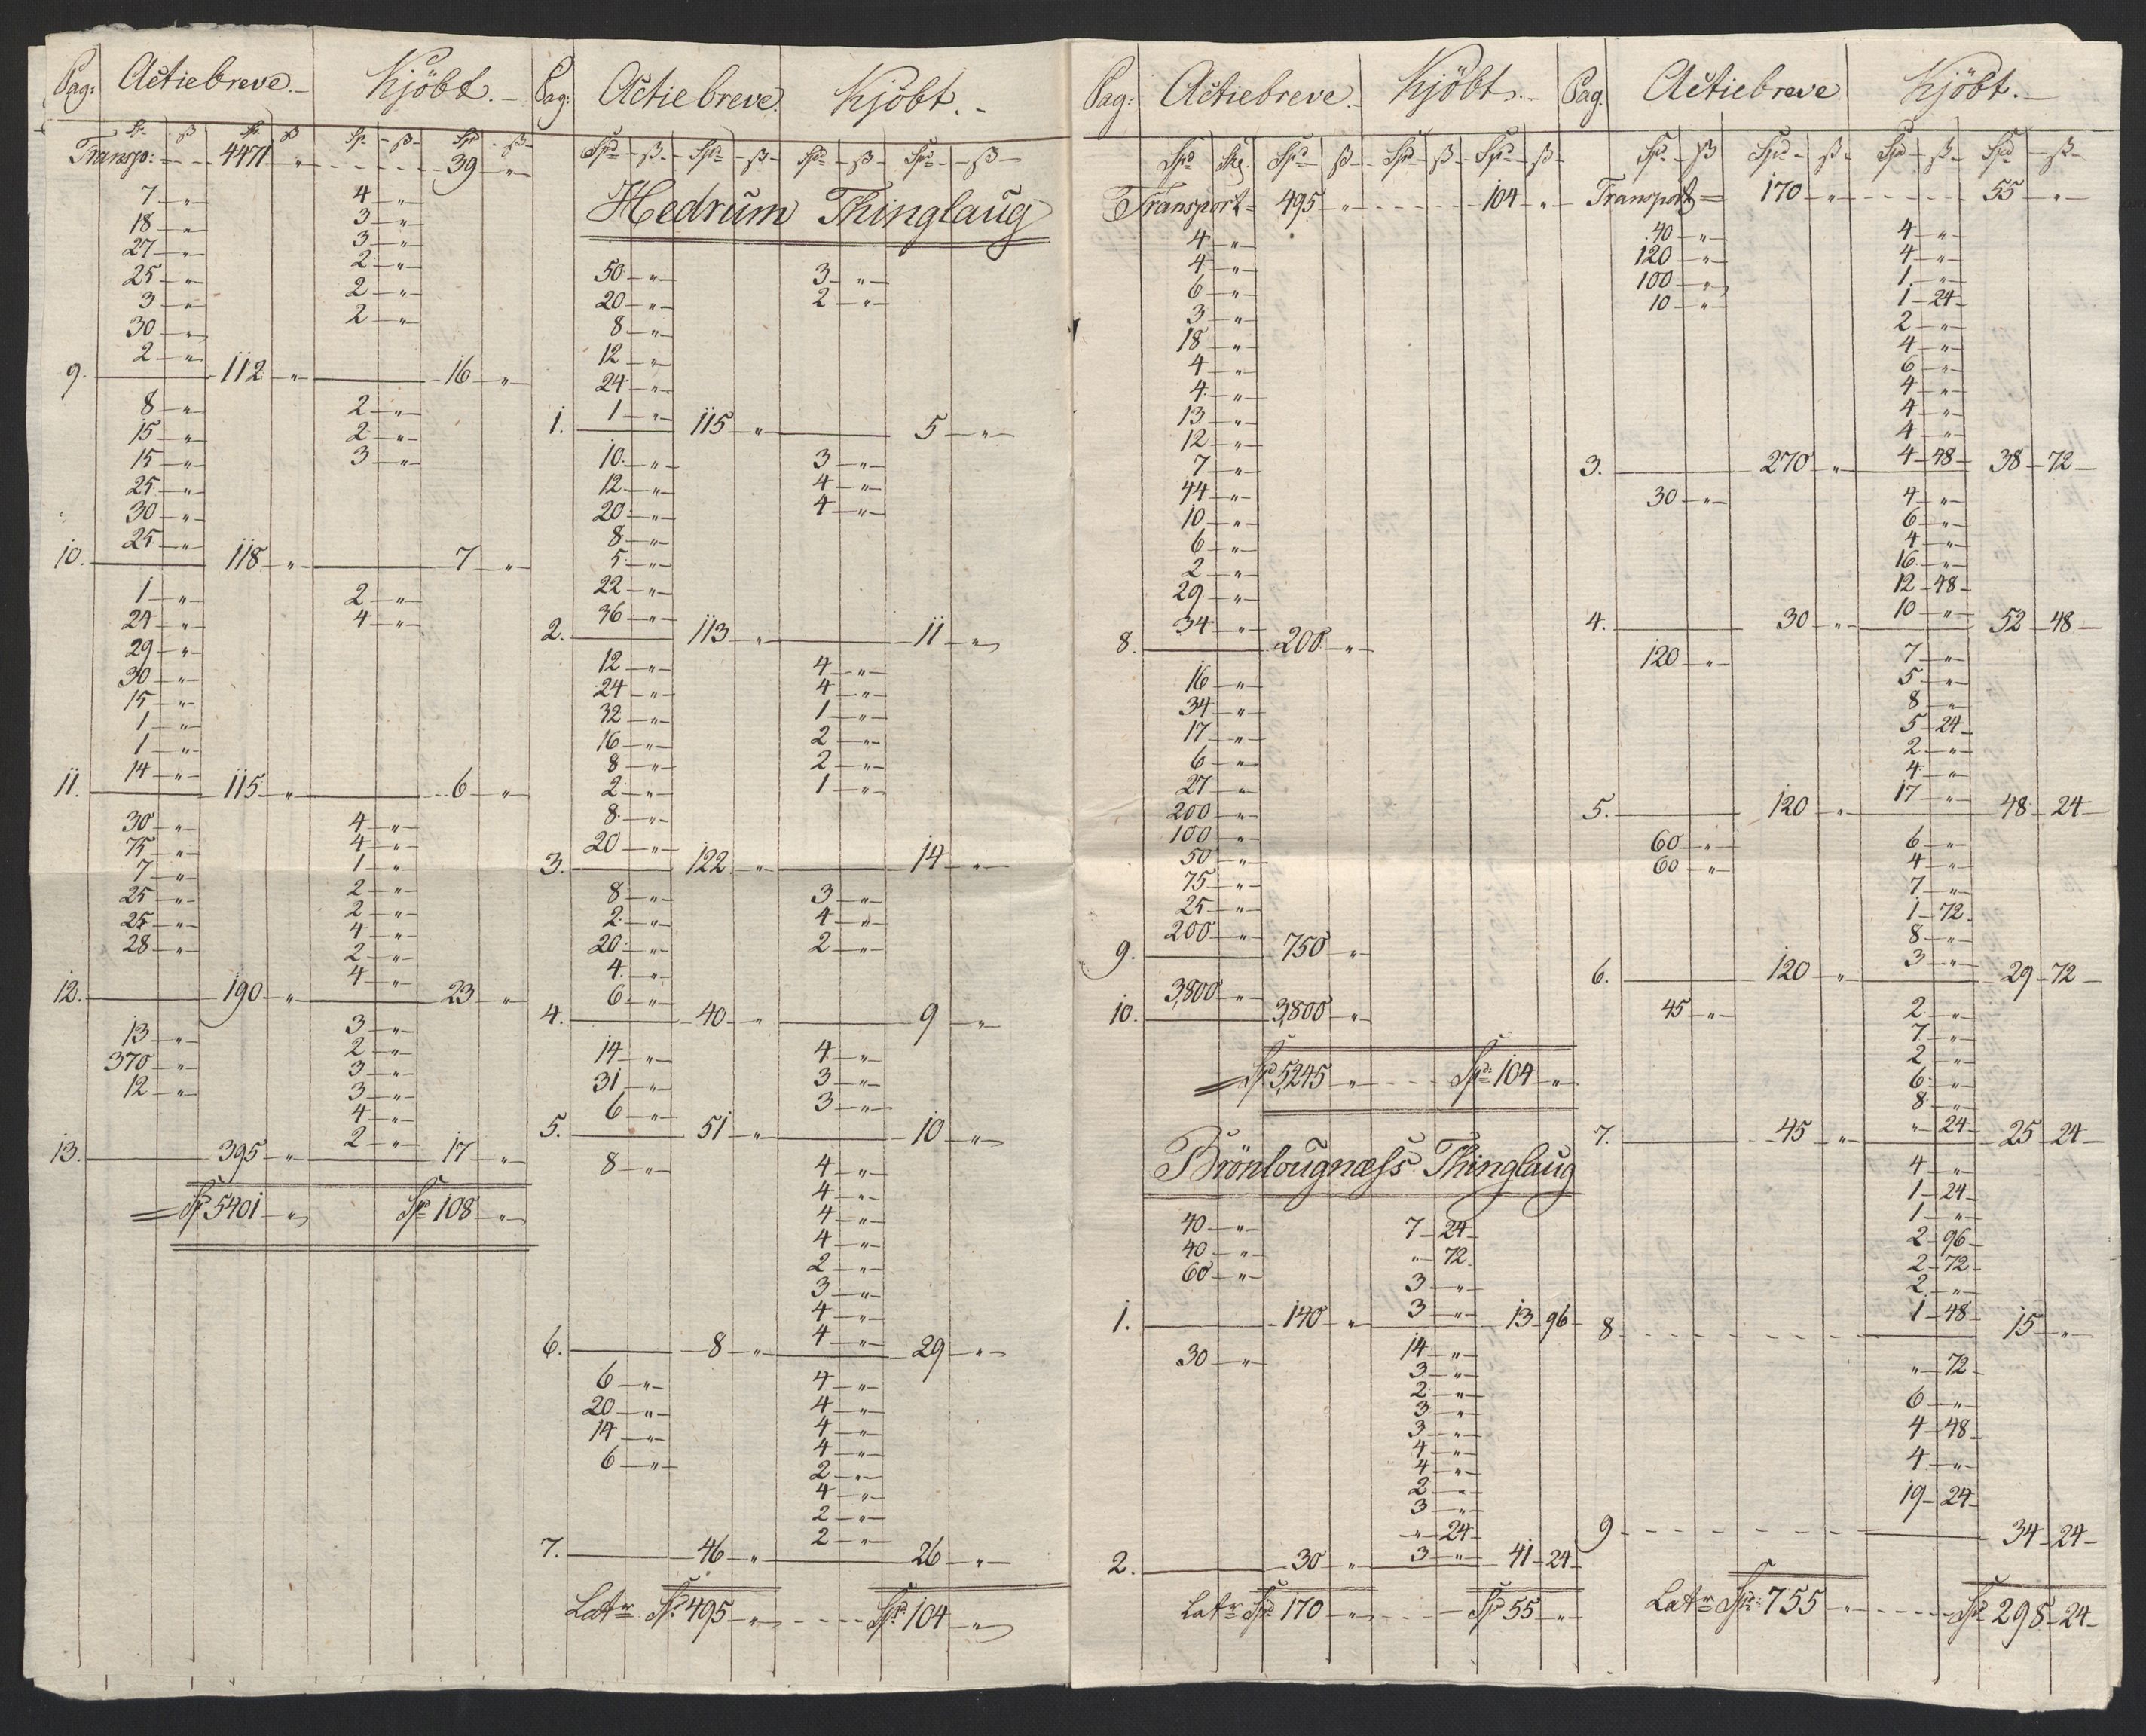 Pag: Actiebreve. Kjöbt.
Sp. ß Sp. ß Sp. ß Spd ß
Transp: 4471 " 39 "
7 " 4 "
18 " 3 "
27 " 3 "
25 " 2 "
3 " 2 "
30 " 2 "
2 "
9. 112 " 16 "
8 " 2 "
15 " 2 "
15 " 3 "
25 "
30 "
25 "
10. 118 " 7 "
1 " 2 "
24 " 4 "
29 "
30 "
15 "
1 "
1 "
14 "
11. 115 " 6 "
30 " 4 "
75 " 4 "
7 " 1 "
25 " 2 "
25 " 2 "
28 " 4 "
2 "
4 "
12. 190 " 23 "
13 " 3 "
370 " 2 "
12 " 3 "
3 "
4 "
2 "
13. 395 " 17 "
Sp 5401 " Sp 108 "
Pag: Actiebreve. Kjöbt.
Spd ß Spd ß Spd ß Spd ß
Hedrum Thinglaug
50 " 3 "
20 " 2 "
8 "
12 "
24 "
1 "
1. 115 " 5 "
10 " 3 "
12 " 4 "
20 " 4 "
8 "
5 "
22 "
36 "
2. 113 " 11 "
12 " 4 "
24 " 4 "
32 " 1 "
16 " 2 "
8 " 2 "
2 " 1 "
8 "
20 "
3. 122 " 14 "
8 " 3 "
2 " 4 "
20 " 2 "
4 "
6 "
4. 40 " 9 "
14 " 4 "
31 " 3 "
6 " 3 "
5. 51 " 10 "
8 " 4 "
4 "
4 "
4 "
2 "
3 "
4 "
4 "
6. 8 " 29 "
6 " 4 "
20 " 4 "
14 " 4 "
6 " 4 "
2 "
4 "
2 "
2 "
7. 46 " 26 "
Latr Spd 495 " Spd 104 "
Pag: Actiebreve. Kjöbt.
Spd Sk. Spd ß Spd ß Spd ß
Transport 495 " 104 "
4 "
4 "
6 "
3 "
18 "
4 "
4 "
13 "
12 "
7 "
44 "
10 "
6 "
2 "
29 "
34 "
8. 200 "
16 "
34 "
17 "
6 "
27 "
200 "
100 "
50 "
75 "
25 "
200 "
9. 750 "
3,800 "
10. 3,800 "
Spd 5,245 " Spd 104 "
Brönlougnæss Thinglaug
40 " 7 24
40 " " 72
60 " 3 "
3 "
1. 140 " 13 96
30 " 14 "
3 "
2 "
3 "
3 "
4 "
4 "
2 "
3 "
" 24
3 "
2. 30 " 41 24
Latr Spd 170 " Spd 55 "
Pag. Actiebreve Kjöbt.
Spd ß Spd ß Spd ß Spd ß
Transport 170 " 55 "
40 " 4 "
120 " 4 "
100 " 1 "
10 " 1 24
2 "
4 "
6 "
4 "
4 "
4 "
4 48
3. 270 " 38 72
30 " 4 "
6 "
4 "
16 "
12 48
10 "
4. 30 " 52 48
120 " 7 "
5 "
8 "
5 24
2 "
4 "
17 "
5. 120 " 48 24
60 " 6 "
60 " 4 "
7 "
1 72
8 "
3 "
6. 120 " 29 72
45 " 2 "
7 "
2 "
6 "
8 "
" 24
7. 45 " 25 24
4 "
1 24
1 "
2 96
2 72
2 "
1 48
8 15 "
" 72
6 "
4 48
4 "
19 24
9 34 24
Latr Spd 755 " Spd 298 24